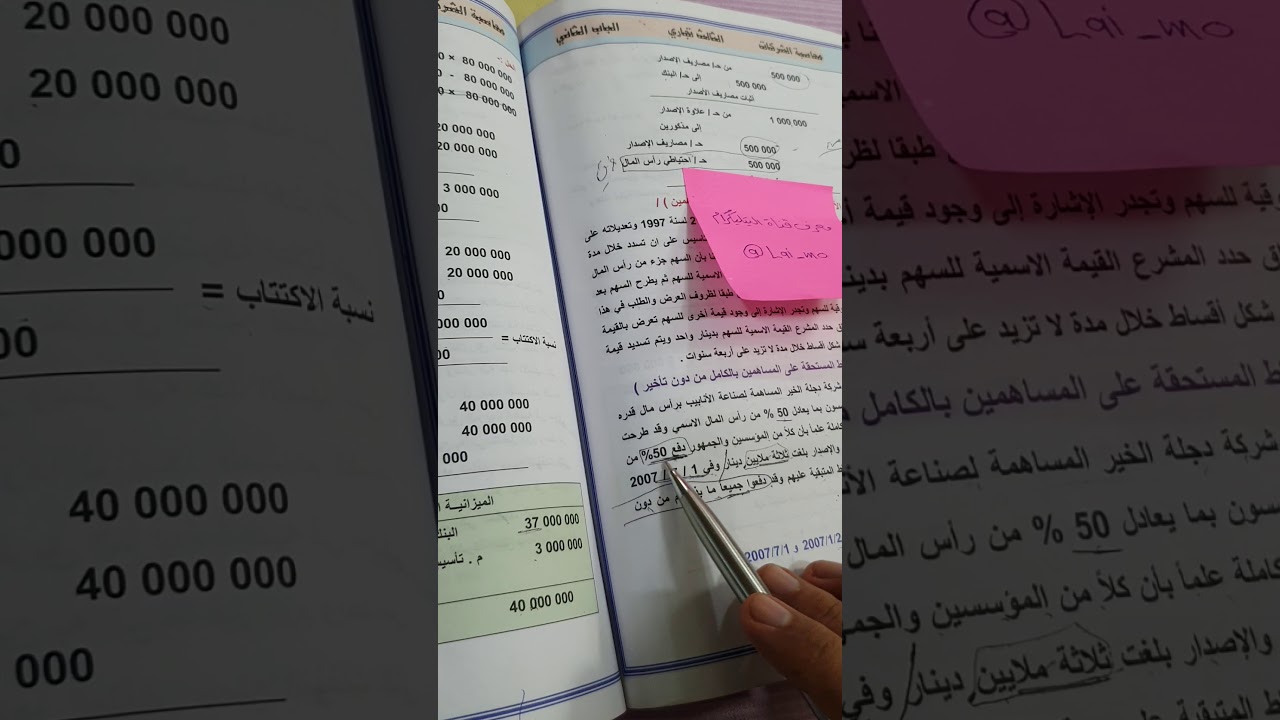 محاسبة الشركات الثالث تجاري الباب الثاني
500 000 من حـ/ مصاريف الإصدار
500 000 إلى حـ/ البنك
أثبات مصاريف الأصدار
1 000,000 من حـ / علاوة الإصدار
إلى مذكورين
500 000 حـ / مصاريف الإصدار
500 000 حـ / احتياطي رأس المال
معرف قناة التيليكرام
@Lai_mo
لسنة 1997 وتعديلاته على
تأسيس على ان تسدد خلال مدة
بأن السهم جزء من رأس المال
الاسمية للسهم ثم يطرح السهم بعد
طبقا لظروف العرض والطلب في هذا
وقية للسهم وتجدر الإشارة إلى وجود قيمة أخرى للسهم تعرض بالقيمة
حدد المشرع القيمة الاسمية للسهم بدينار واحد ويتم تسديد قيمة
شكل أقساط خلال مدة لا تزيد على أربعة سنوات .
المستحقة على المساهمين بالكامل من دون تأخير )
شركة دجلة الخير المساهمة لصناعة الأنابيب برأس مال قدره
سسون بما يعادل 50 % من رأس المال الاسمي وقد طرحت
كاملة علماً بأن كلاً من المؤسسين والجمهور دفع 50% من
والإصدار بلغت ثلاثة ملايين دينار وفي 1 / 7 / 2007
المتبقية عليهم وقد دفعوا جميعاً ما من دون
2007/7/1 و
محاسبة
الحل :-
80 000 000 ×
80 000 000 -
80 000 000 ×
20 000 000
20 000 000
3 000 000
20 000 000
20 000 000
000 000
نسبة الاكتتاب =
40 000 000
40 000 000
000
الميزانية
37 000 000 البنك
3 000 000 م . تأسيس
40 000 000